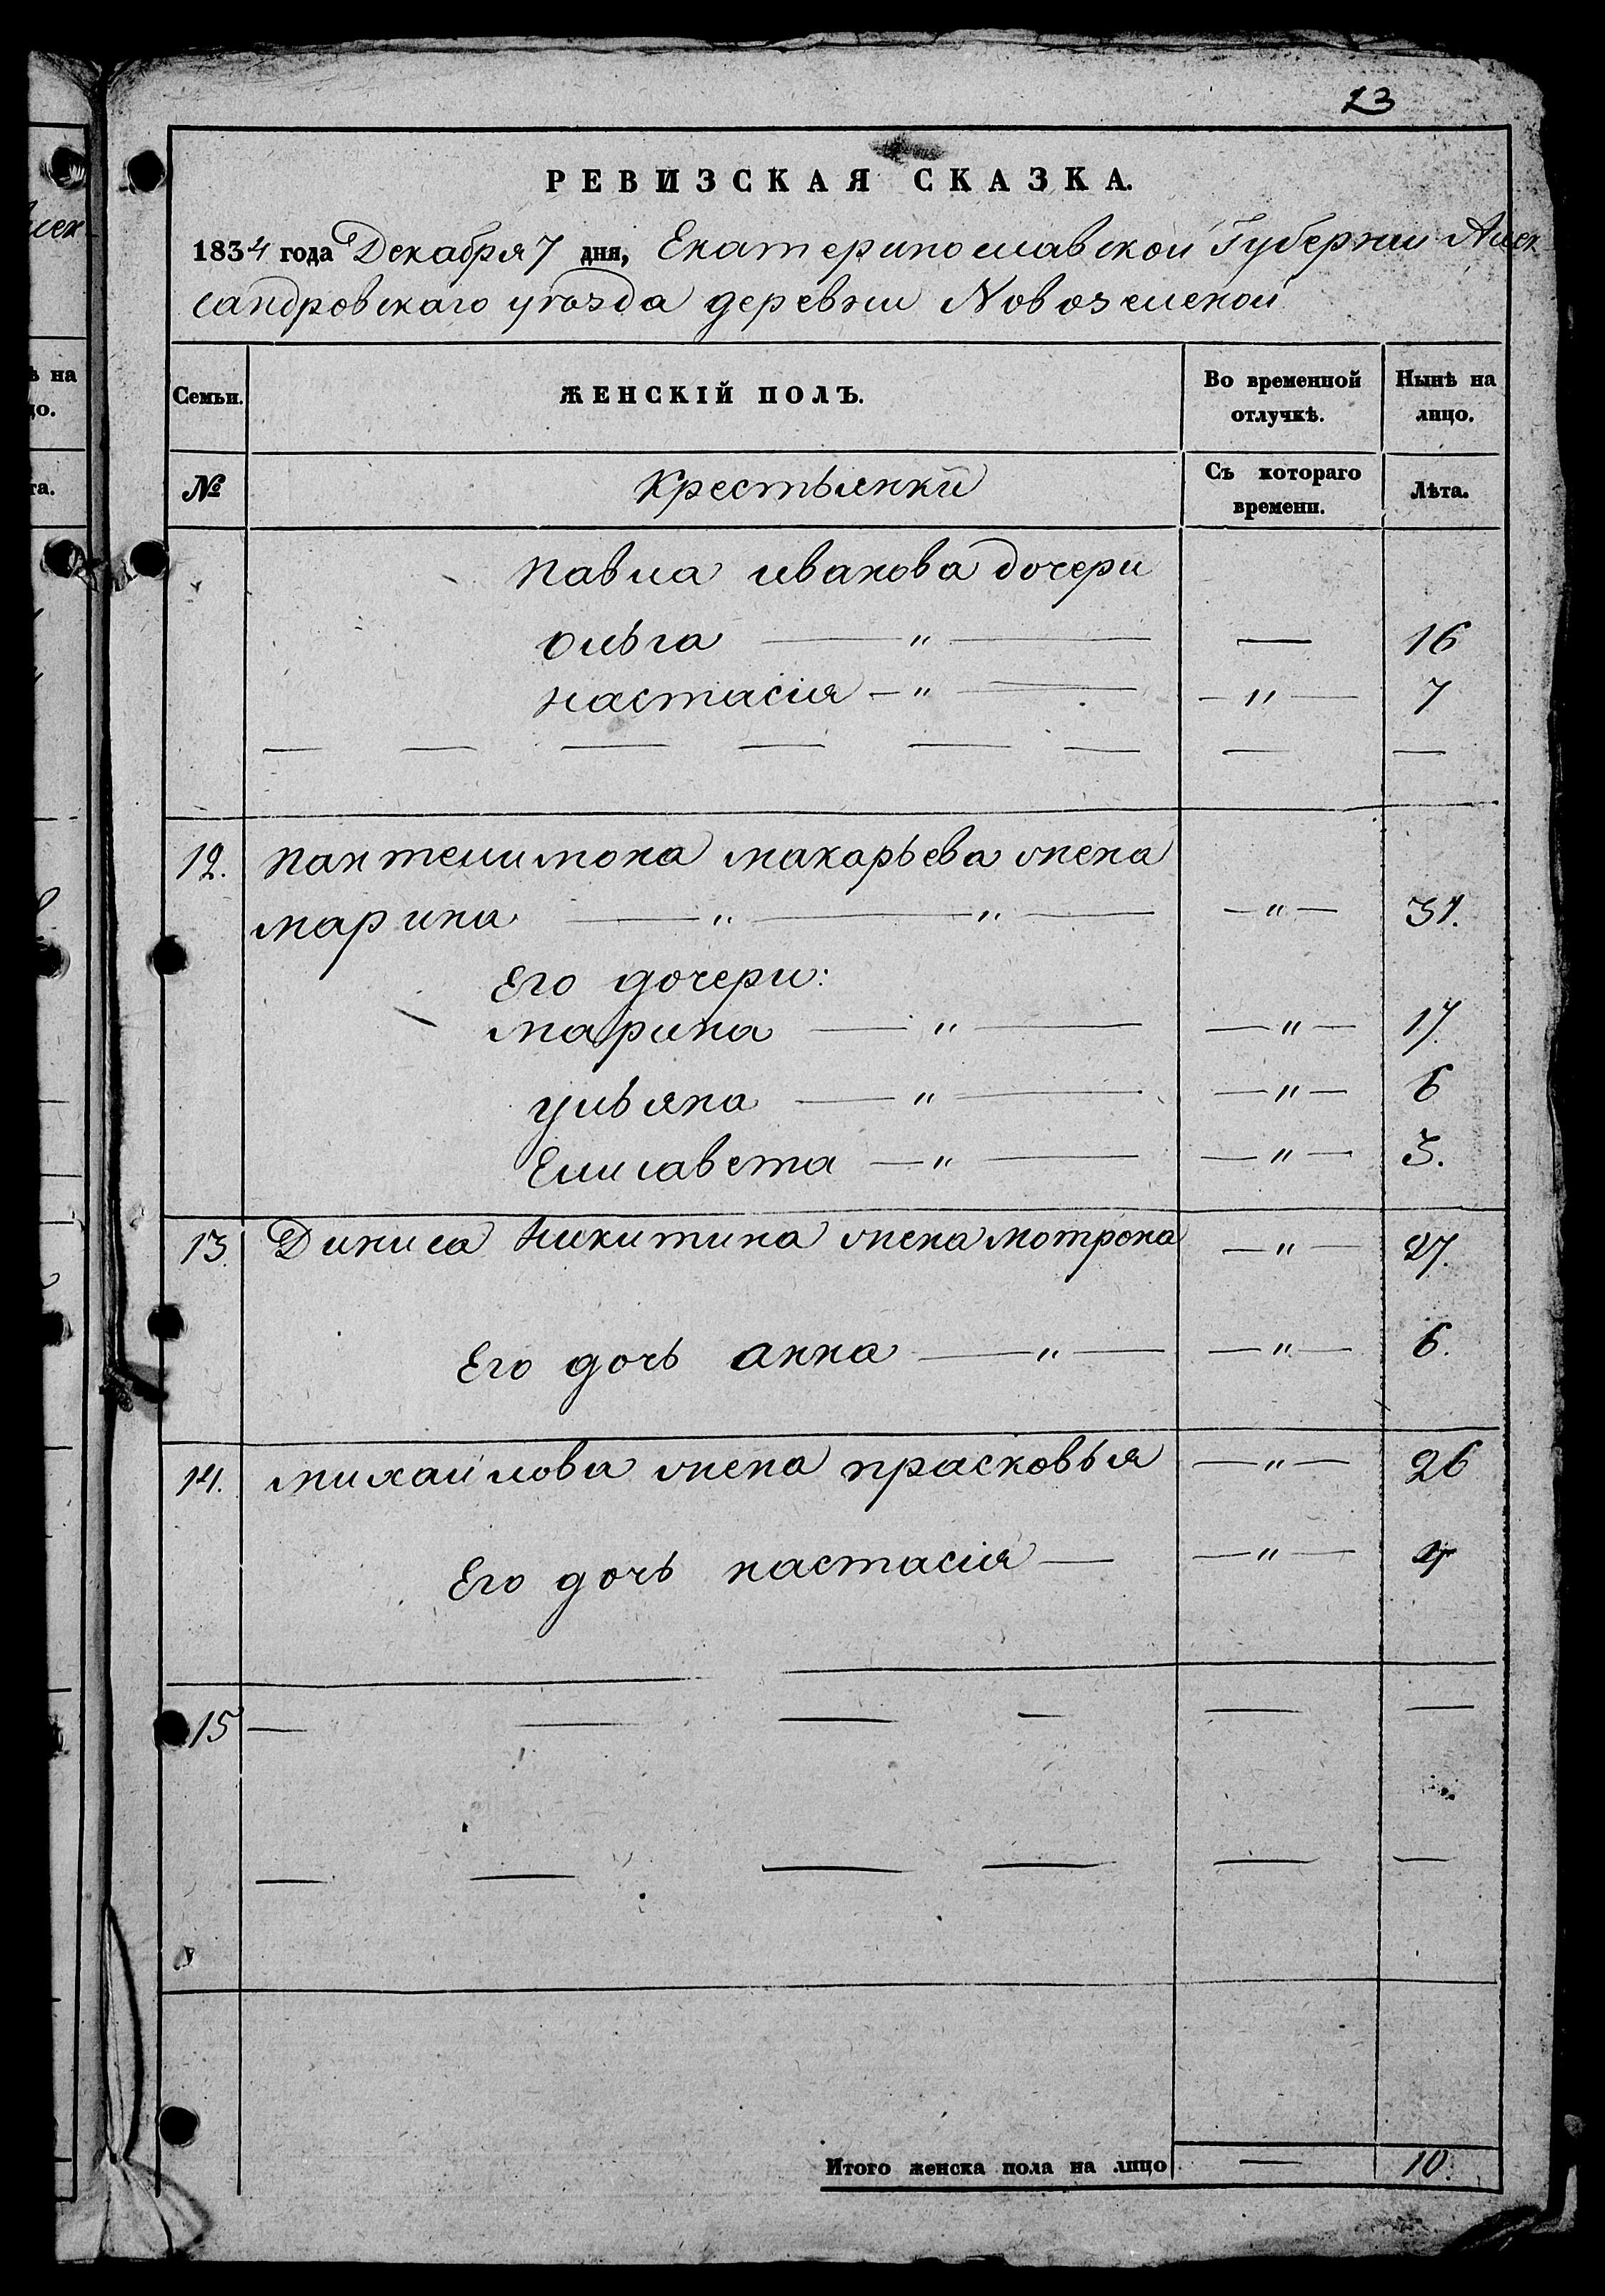 23
РЕВИЗСКАЯ СКАЗКА.
1834 года Декабря 7 дня, Екатеринославской Губернии Алек
сандровскаго уѣзда деревни Новоземской
Семьи. ЖЕНСКІЙ ПОЛЪ. Во временной отлучкѣ. Нынѣ на лицо.
№ Крестьянки Съ котораго времени. Лѣта.
Павла иванова дочери
ольга — " — — 16
настасія — " — — " — 7
— — — — — — — —
12. пантелимона макарьева жена
марина — " — " — — " — 31.
Его дочери:
марина — " — — " — 17.
ульяна — " — — " — 6
Елисавета — " — — " — 3.
13. Диниса Никитина жена мотрона — " — 27.
Его дочь анна — " — — " — 6.
14. михайлова жена прасковья — " — 26
Его дочь настасія — — " — 4
15 — — — — — —
— — — — — —
Итого женска пола на лицо — 10.
ѣ на
цо.
та.